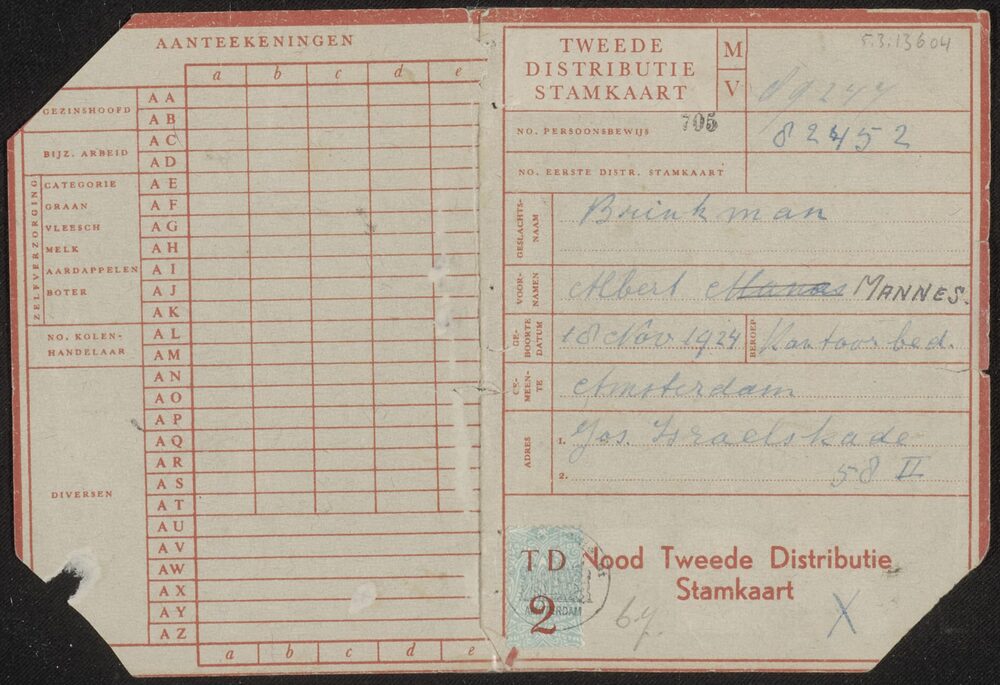 AANTEEKENINGEN
a b c d e
GEZINSHOOFD
AA
AB
BIJZ. ARBEID
AC
AD
ZELFVERZORGING
CATEGORIE AE
GRAAN AF
VLEESCH AG
MELK AH
AARDAPPELEN AI
BOTER AJ
AK
NO. KOLEN-
HANDELAAR
AL
AM
DIVERSEN
AN
AO
AP
AQ
AR
AS
AT
AU
AV
AW
AX
AY
AZ
a b c d e
5.3.13604
TWEEDE
DISTRIBUTIE
STAMKAART
M
V
NO. PERSOONSBEWIJS
705
82452
NO. EERSTE DISTR. STAMKAART
GESLACHTS-
NAAM
Brinkman
VOOR-
NAMEN
Albert MANNES.
GE-
BOORTE
DATUM
18 Nov 1924
BEROEP
Kantoorbed.
GE-
MEEN-
TE
Amsterdam
ADRES
1. Jos. Israelskade
2. 58 II
TD
2
AMSTERDAM
Nood Tweede Distributie
Stamkaart
X